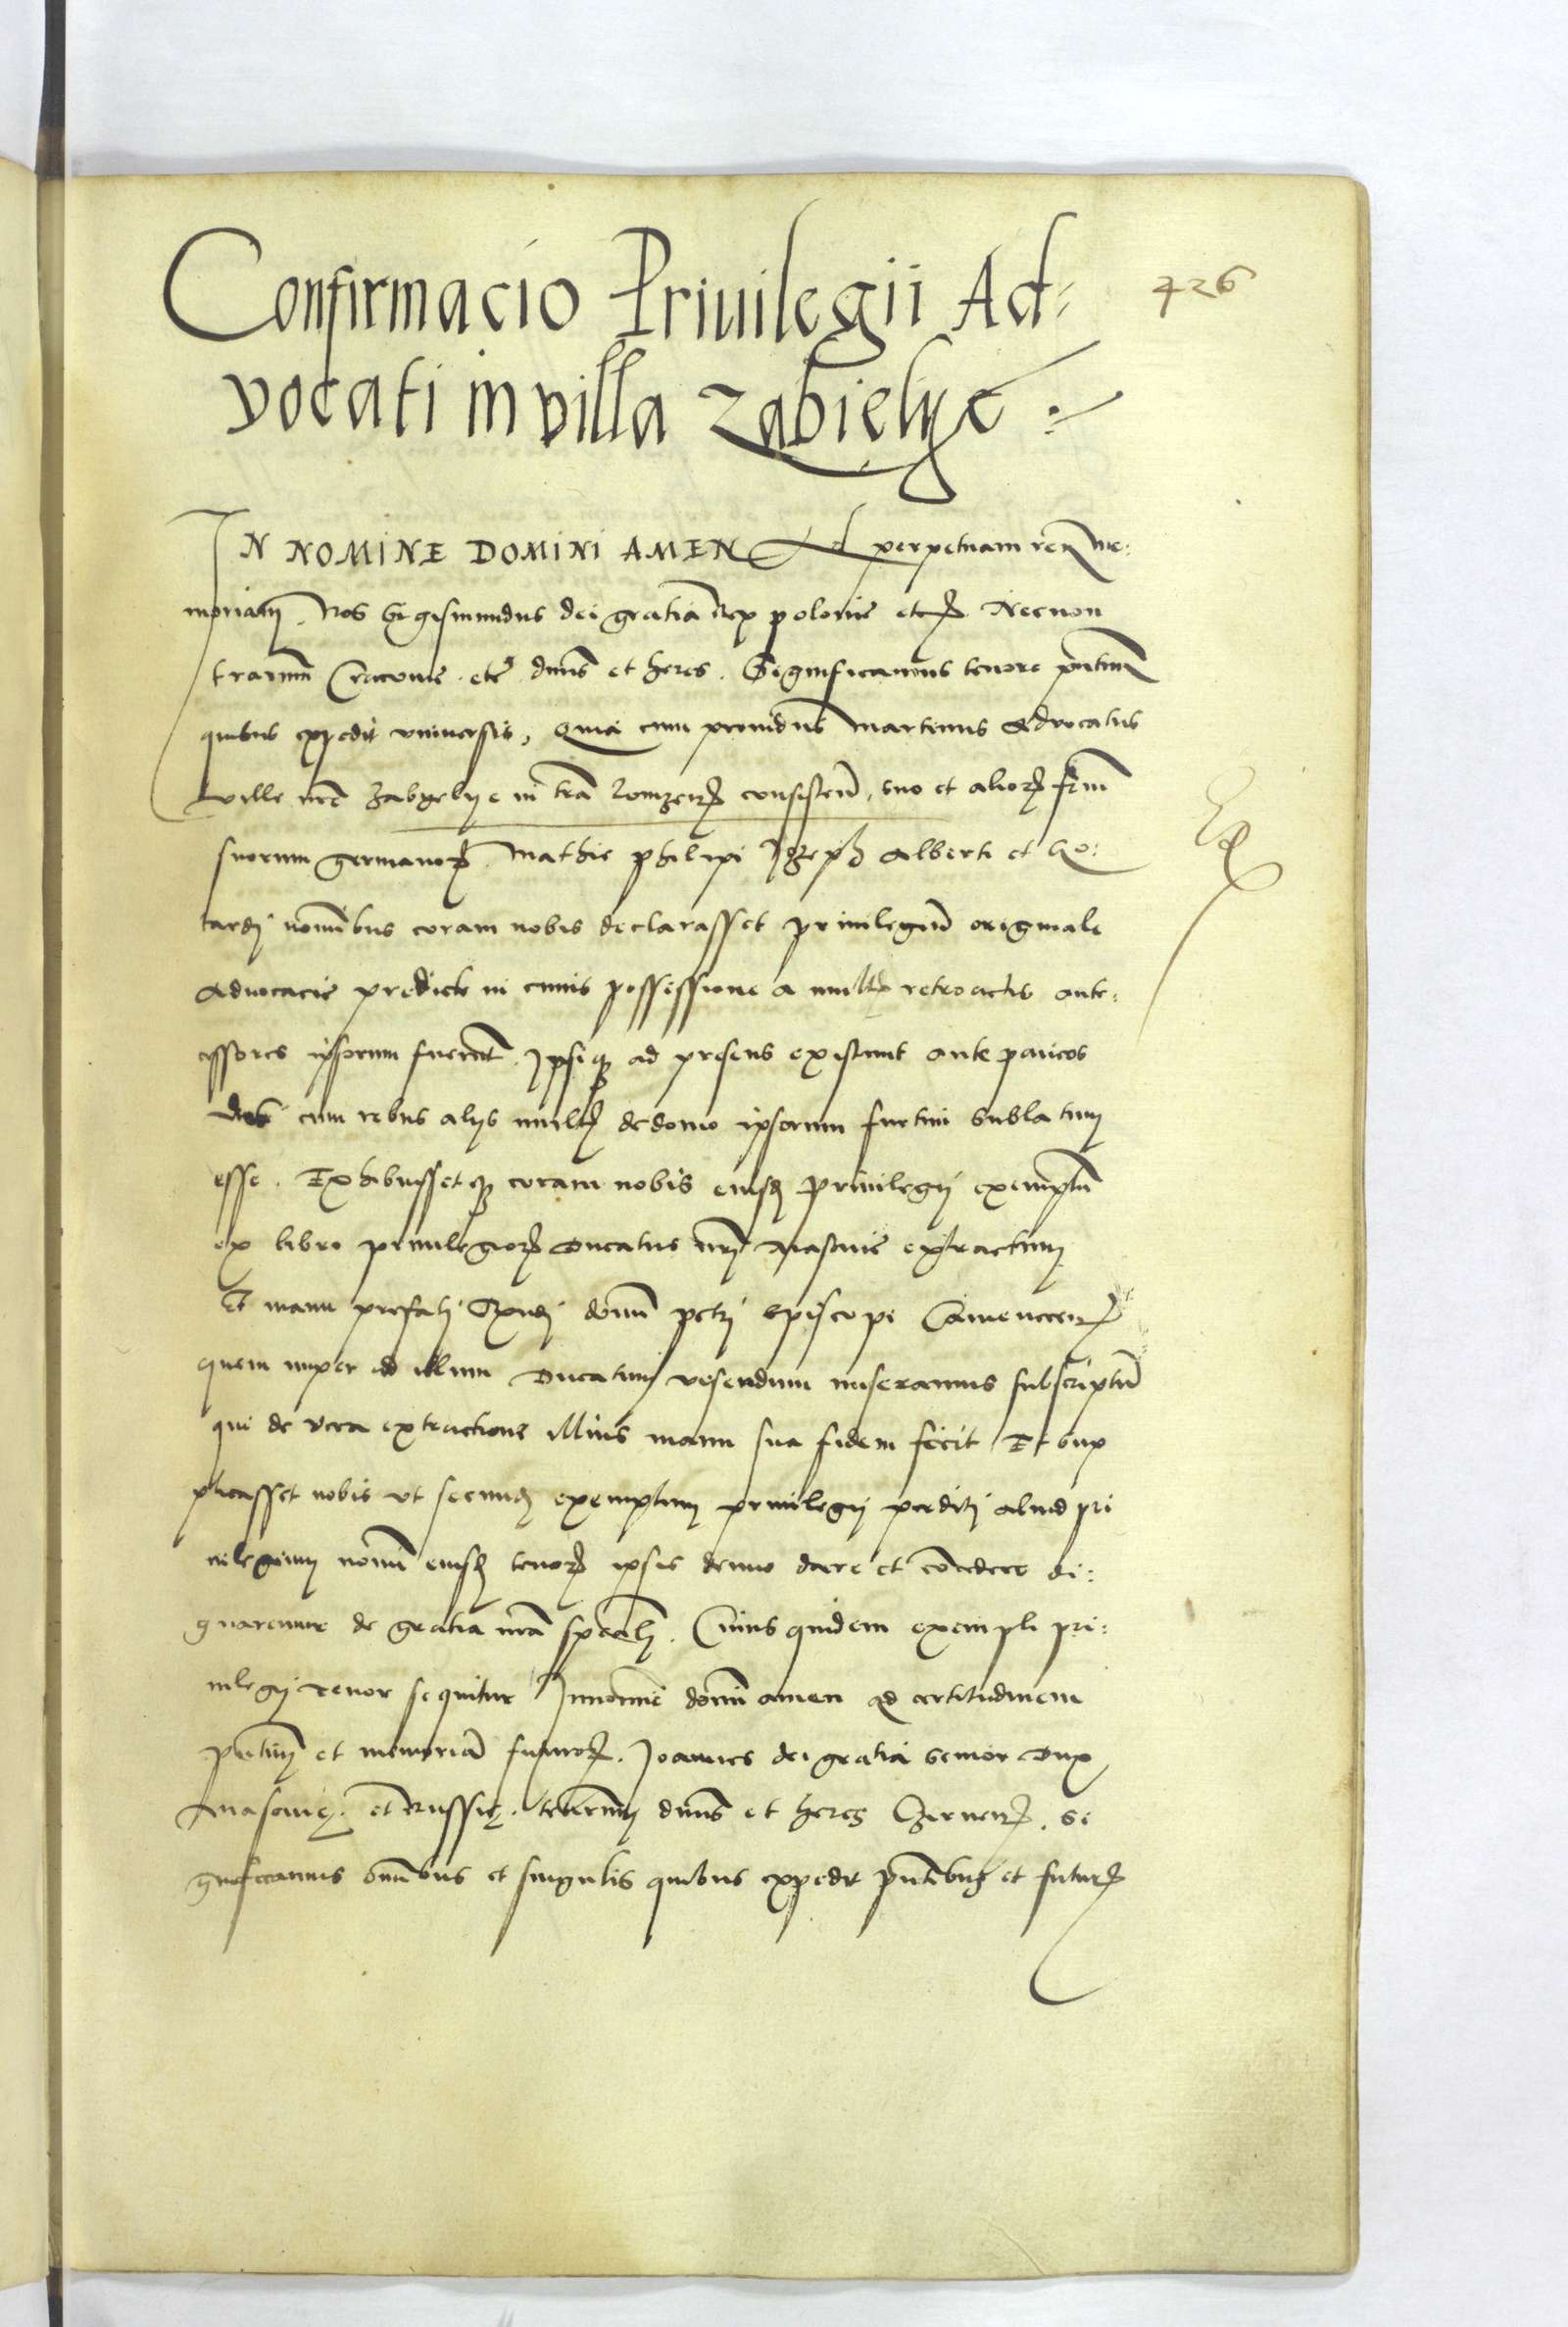 Confirmacio Priuilegii Ad=
426
vocati in villa Zabielye
IN NOMINE DOMINI AMEN Ad perpetuam reȝ me:
moriam. Nos Sigismundus dei gratia rex polonie etcꝫ Necnon
trarum Cracouie etc̃ dñus et heres. Significamus tenore pñtium
quibus expedit vniuersis, Quia cum prouidus Martinus Aduocatus
ville nr̃e Zabyelye in tr̃a Lomzenꝫ consisteñ, suo et alioꝝ frũm
suorum germanoꝝ Mathie philipi Jozeph Alberti et Go:
tardi noĩbus coram nobis declarasset priuilegiũ originale
Aduocacie predicte in cuius possessione a multꝭ retroactis ante:
cessores ipsorum fuerũt. Ipsiqꝫ ad presens existunt ante paucos
dies cum rebus alijs multꝭ de domo ipsorum furtim sublatum
esse. Exhibuissetqꝫ coram nobis eiusdẽ priuilegij exemplũ
ex libro priuilegioꝝ Ducatus nr̃i Masouie extractum
Et manu prefati Rñdi domĩ petri episcopi Camenecenꝫ
quem nuper ad illum Ducatum visendum miseramus subscriptũ
qui de vera extractione illius manu sua fidem fecit Et sup
plicasset nobis vt secundũ exemplum priuilegij perditi aliud pri
uilegium nouũ eiusdẽ tenoꝝ ipsis denuo dare et cõcedere di:
gnaremur de gratia nr̃a speciali. Cuius quidem exempli pri:
uilegij tenor sequitur In nomĩe domĩ amen ad certitudinem
pñtium et memoriã futuroꝝ. Joannes dei gratia senior Dux
Masouię. et Russię. terrarum dñus et heres Czernenꝫ. Si
gnificamus om̃ibus et singulis quibus expedit pñtibus et futurꝭ